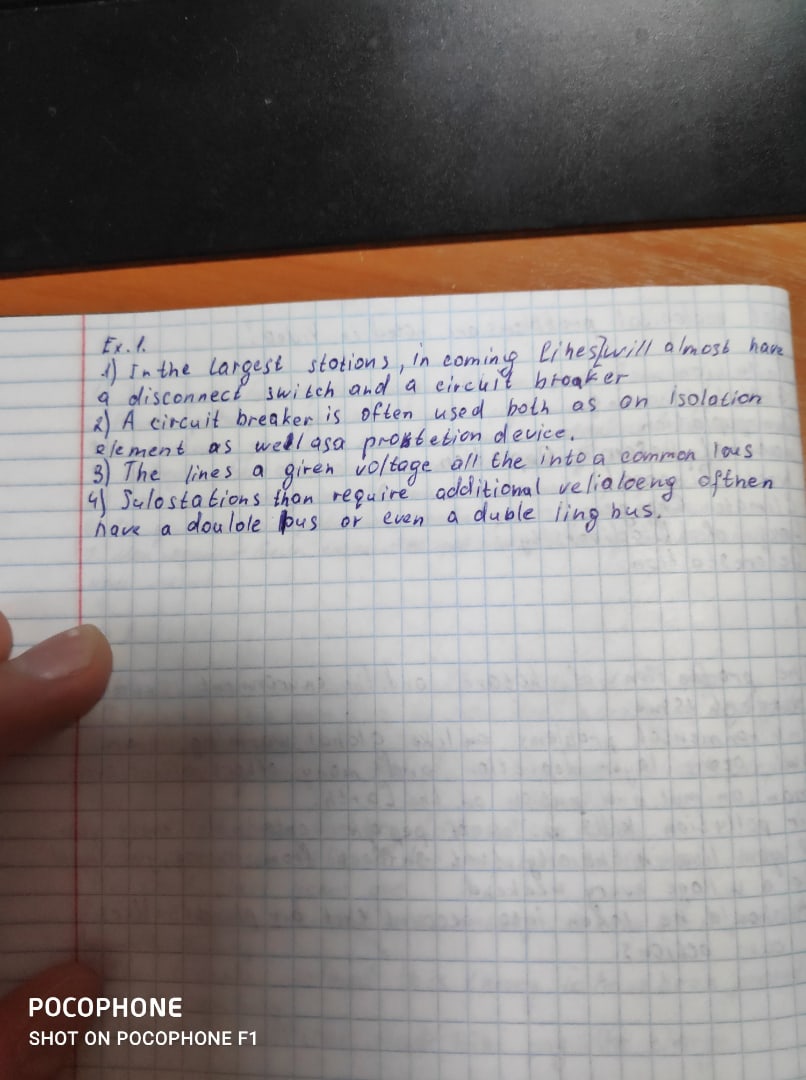 Ex. 1.
1) In the largest stotions, in coming lines will almost have
a disconnect switch and a circuit broaker
2) A circuit breaker is often used both as on isolation
element as well asa protetion device.
3) The lines a giren voltage all the into a common lous
4) Sulostations than require additional velialoeng ofthen
have a doulole bus or even a duble ling bus.
POCOPHONE
SHOT ON POCOPHONE F1